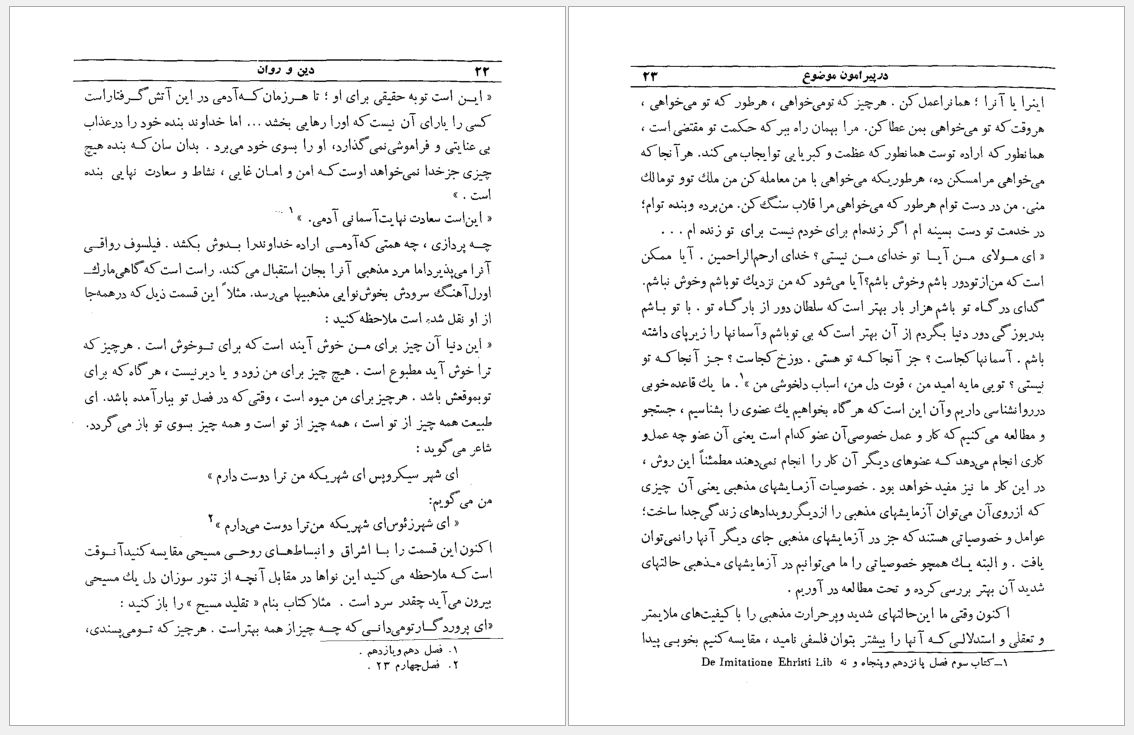 ۲۲ دین و روان
« ایـن است توبه حقیقی برای او ؛ تا هـرزمان کـه آدمی در این آتش گـرفتاراست
کسی را یارای آن نیست که اورا رهایی بخشد ... اما خداوند بنده خود را درعذاب
بی عنایتی و فراموشی نمی گذارد، او را بسوی خود می‌برد . بدان سان کـه بنده هیچ
چیزی جزخدا نمی‌خواهد اوست کـه امن و امـان غایی ، نشاط و سعادت نهایی بنده
است . »
« این‌است سعادت نهایت آسمانی آدمی. »۱
چـه پردازی ، چه همتی که آدمـی اراده خداوندرا بـدوش بکشد . فیلسوف رواقـی
آنرا می‌پذیرداما مرد مذهبی آنرا بجان استقبال می‌کند. راست است که گاهی مارك‌ـ
اورل آهنگ سرودش بخوش‌نوایی مذهبیها می‌رسد. مثلاً این قسمت ذیل که درهمه‌جا
از او نقل شده است ملاحظه کنید :
« این دنیا آن چیز برای مـن خوش آیند است که برای تـوخوش است . هرچیز که
ترا خوش آید مطبوع است . هیچ چیز برای من زود و یا دیرنیست ، هر گاه که برای
توبموقعش باشد . هرچیزبرای من میوه است ، وقتی که در فصل تو ببار آمده باشد. ای
طبیعت همه چیز از تو است ، همه چیز از تو است و همه چیز بسوی تو باز می گردد.
شاعر می گوید :
ای شهر سیکروپس ای شهریکه من ترا دوست دارم »
من می گویم:
« ای شهرزئوس‌ای شهریکه من‌ترا دوست می‌دارم »۲
اکنون این قسمت را بـا اشراق و انبساط‌هـای روحـی مسیحی مقایسه کنیدآنـوقت
است کـه ملاحظه می کنید این نواها در مقابل آنچـه از تنور سوزان دل یك مسیحی
بیرون می‌آید چقدر سرد است . مثلا کتاب بنام « تقلید مسیح » را باز کنید :
«ای پروردگـارتومی‌دانـی که چـه چیزاز همه بهتراست . هرچیز که تـومی‌پسندی،
۱. فصل دهم ویازدهم .
۲. فصل‌چهارم ۲۳ .
درپیرامون موضوع ۲۳
اینرا یا آنرا ؛ همانراعمل کن . هرچیز که تومی‌خواهی ، هرطور که تو می‌خواهی ،
هروقت که تو می‌خواهی بمن عطا کن. مرا بهمان راه ببر که حکمت تو مقتضی است ،
همانطور که اراده توست همانطور که عظمت و کبریایی توایجاب می کند. هر آنجا که
می‌خواهی مرا مسکن ده، هرطوریکه می‌خواهی با من معامله کن من ملك توو تومالك
منی. من در دست توام هرطور که می‌خواهی مرا قلاب سنگ کن. من‌برده وبنده توام؛
در خدمت تو دست بسینه ام اگر زنده‌ام برای خودم نیست برای تو زنده ام ...
« ای مـولای مـن آیـا تو خدای مـن نیستی ؟ خدای ارحم‌الراحمین . آیا ممکن
است که من‌ازتودور باشم وخوش باشم؟آیا می‌شود که من نزدیك توباشم وخوش نباشم.
گدای در گاه تو باشم هزار بار بهتر است که سلطان دور از بار گـاه تو . با تو بـاشم
بدریوزگی دور دنیا بگردم از آن بهتر است‌که بی توباشم و آسمانها را زیرپای داشته
باشم . آسمانها کجاست ؟ جز آنجا کـه تو هستی . دوزخ کجاست ؟ جـز آنجا کـه تو
نیستی ؟ تویی مایه امید من ، قوت دل من، اسباب دلخوشی من »۱. ما یك قاعده‌خوبی
درروانشناسی داریم و آن این است که هر گاه بخواهیم یك عضوی را بشناسیم ، جستجو
و مطالعه می کنیم که کار و عمل خصوصی آن عضو کدام است یعنی آن عضو چه عمل‌و
کاری انجام می‌دهد کـه عضوهای دیگر آن کار را انجام نمی‌دهند مطمئناً این روش ،
در این کار ما نیز مفید خواهد بود . خصوصیات آزمـایشهای مذهبی یعنی آن چیزی
که ازروی آن می‌توان آزمایشهای مذهبی را ازدیگررویدادهای زندگی جدا ساخت؛
عوامل و خصوصیاتی هستند که جز در آزمایشهای مذهبی جای دیگر آنها رانمی‌توان
یافت . و البته یـك همچو خصوصیاتی را ما می‌توانیم در آزمایشهای مـذهبی حالتهای
شدید آن بهتر بررسی کرده و تحت مطالعه در آوریم .
اکنون وقتی ما این‌حالتهای شدید وپرحرارت مذهبی را با کیفیت‌های ملایمتر
و تعقلی و استدلالـی کـه آنها را بیشتر بتوان فلسفی نامید ، مقایسه کنیم بخوبـی پیدا
۱ـ کتاب سوم فصل پانزدهم وپنجاه و نه De Imitatione Ehristi Lib